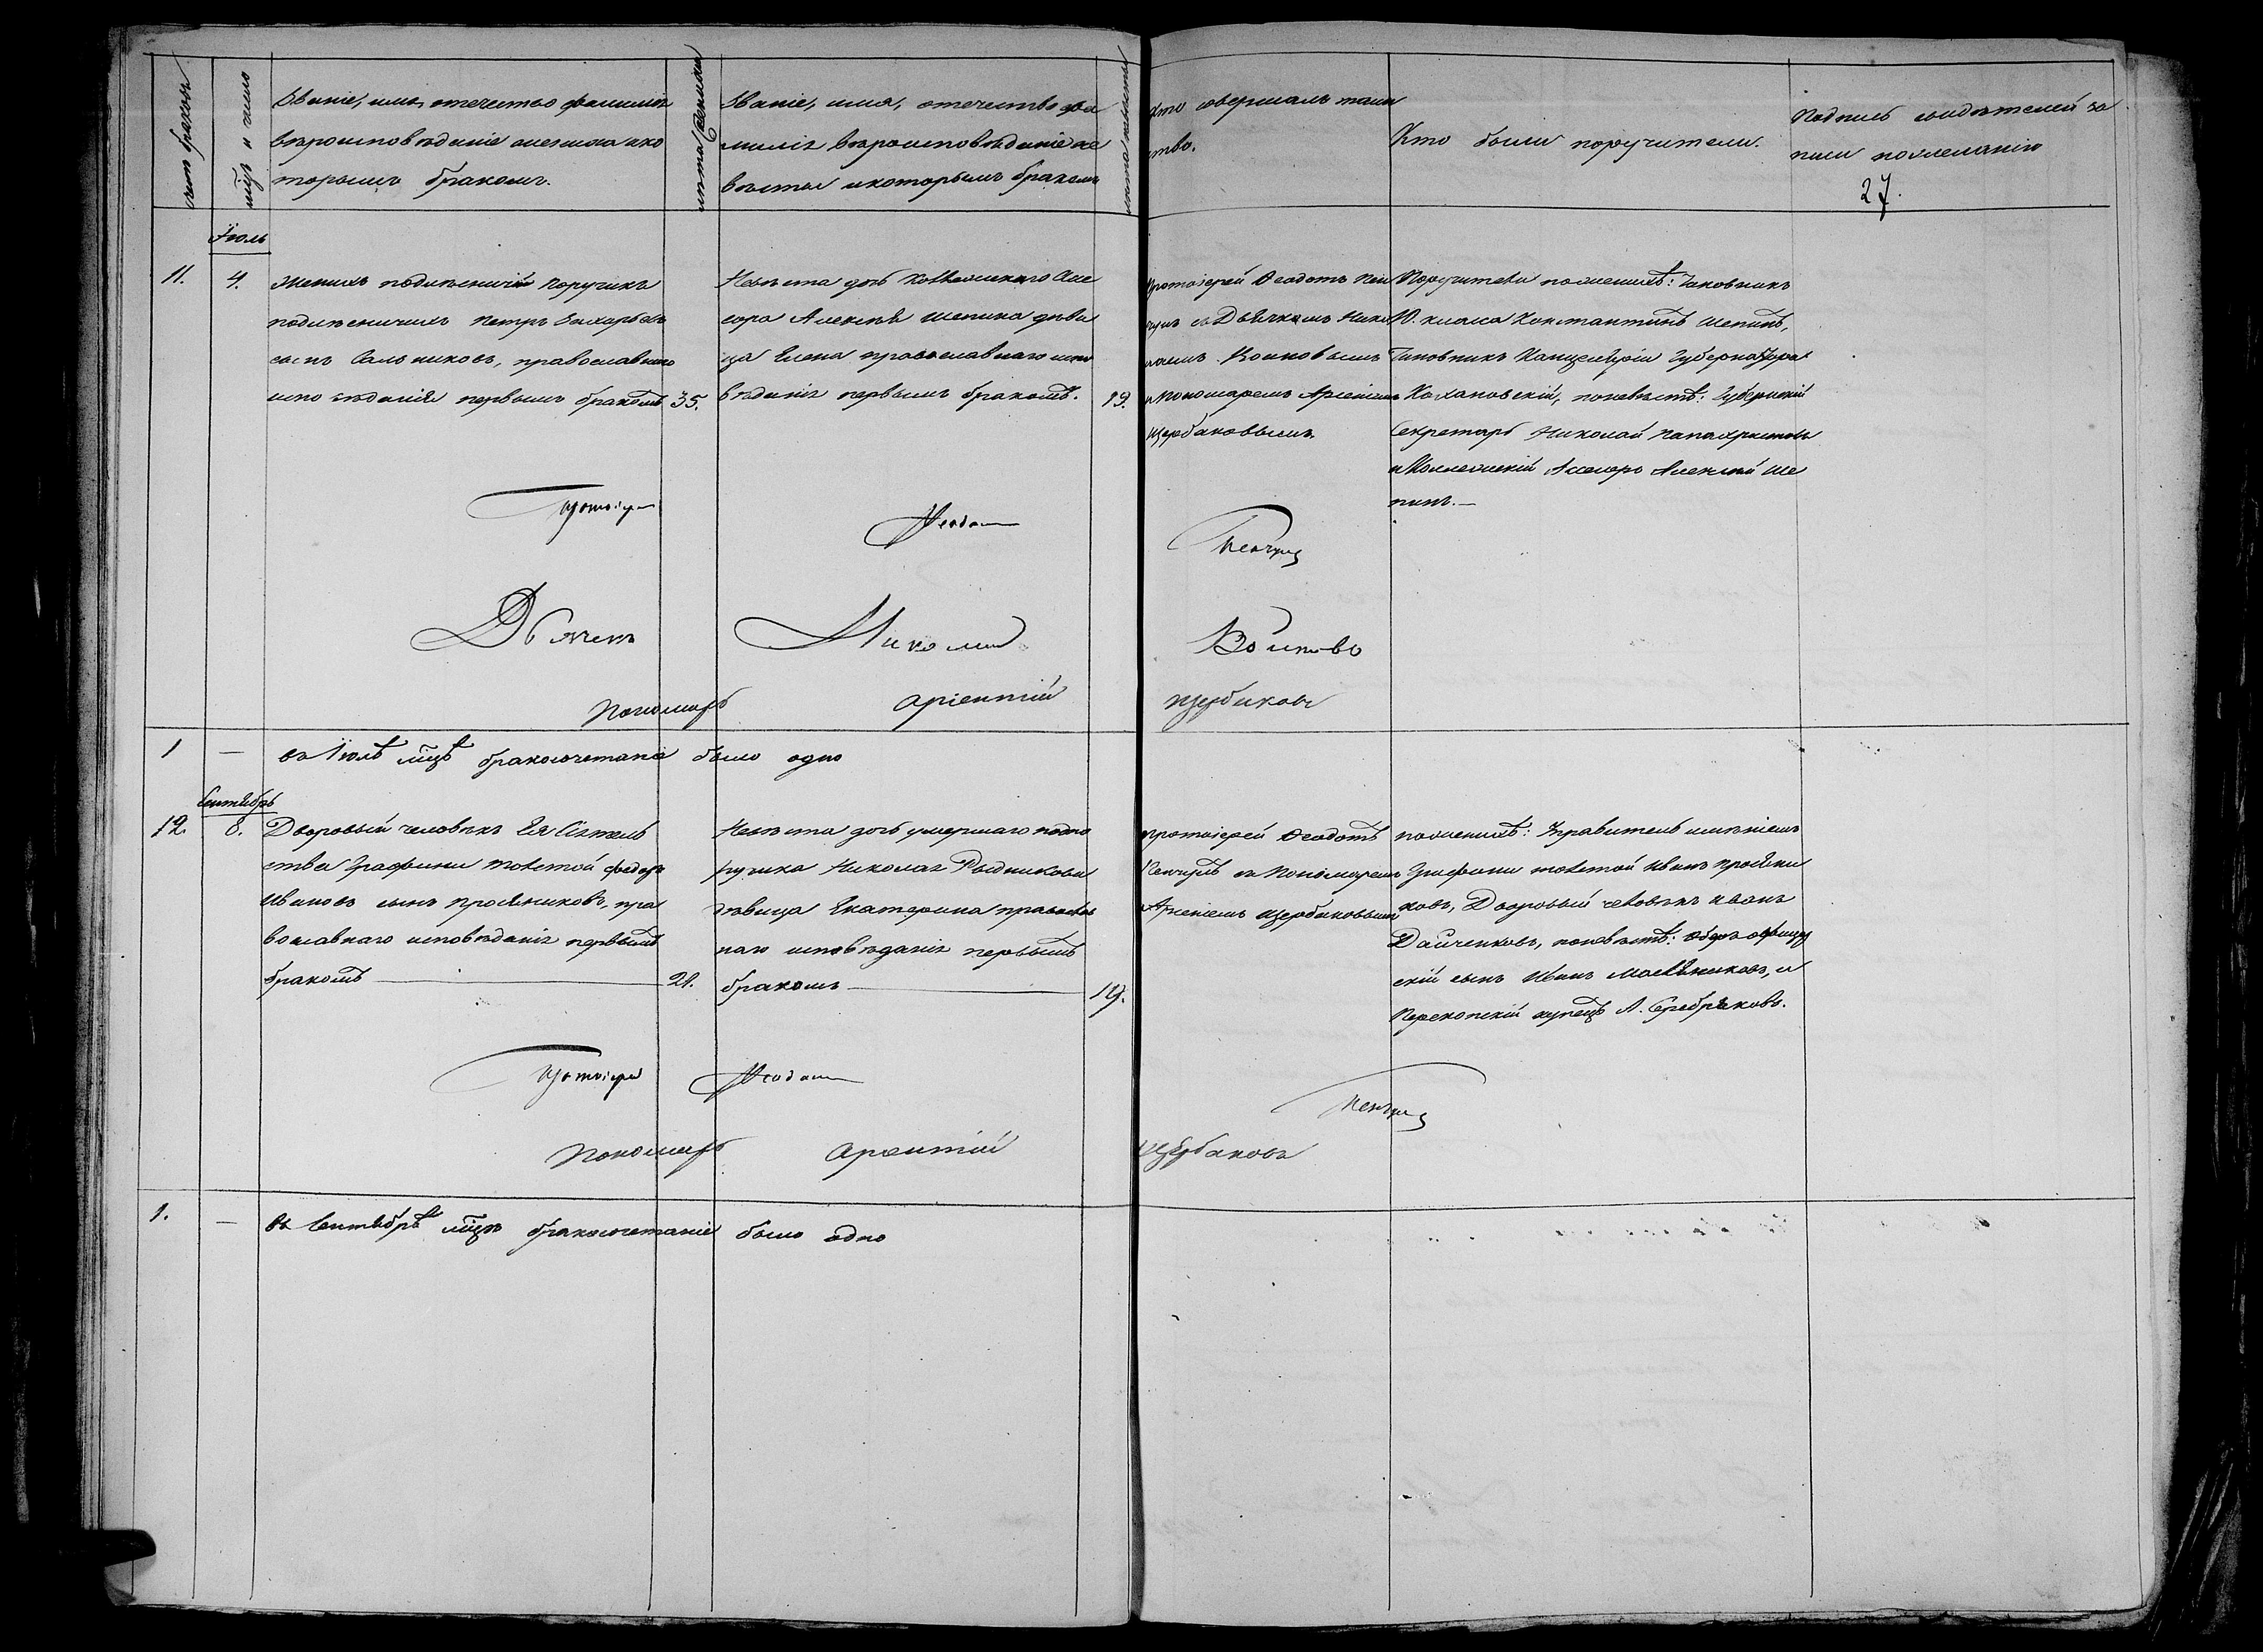 счет браковъ
мцъ и число
Званіе, имя, отечество фамилія
вѣроисповѣданіе жениха и ко
торымъ бракомъ.
лѣта жениха
Званіе, имя, отечество фа
милія вѣроисповѣданіе не
вѣсты и которымъ бракомъ
лѣта невѣсты
Кто совершалъ таин
ство.
Кто были поручители.
Подпись свидѣтелей за
писи по желанію
27.
Іюль
11.
4.
Женихъ подлѣсничій Поручикъ
подлѣсничихъ Петръ Захарьевъ
сынъ Сальниковъ, православнаго
исповѣданія первымъ бракомъ
35.
Невѣста дочь Коллежскаго Асес
сора Алексѣя Шепина дѣви
ца Елена православнаго испо
вѣданія первымъ бракомъ.
19.
Протоіерей Ѳеодотъ Кен
чуцъ съ Дьячкомъ Нико
лаемъ Воиновымъ
и Пономаремъ Арсеніемъ
Щербаковымъ.
Поручители по женихѣ: Чиновникъ
10. класа Константинъ Шепинъ,
Чиновникъ Канцелярія Губернатора
Кохановскій, по невѣстѣ: Губернскій
Секретарь Николай Папахристовъ
и Коллежскій Ассесоръ Алексѣй Ше
пинъ. —
Протоіерей
Ѳеодотъ
Дьячекъ
Николай
Воиновъ
Пономарь
Арсентій
Щербаковъ
1
—
въ Іюлѣ мцѣ бракосочетаніе было одно
Сентябрь
12.
8.
Дворовый человѣкъ Ея Сіятель
ства Графини Толстой Федоръ
Ивановъ сынъ Просяниковъ, пра
вославнаго исповѣданія первымъ
бракомъ —
21.
Невѣста дочь умершаго подпо
ручика Николая Рыдникова
дѣвица Екатерина православ
наго исповѣданія первымъ
бракомъ —
19.
Протоіерей Ѳеодотъ
Кенчуцъ съ Пономаремъ
Арсеніемъ Щербаковымъ
по женихѣ: Управитель имѣніемъ
Графини Толстой Иванъ Просяни
ковъ, Дворовый человѣкъ Иванъ
Дайченковъ, по невѣстѣ: Оберъ офицер
скій сынъ Иванъ Масляниковъ, и
Перекопскій купецъ А. Серебряковъ.
Протоіерей
Ѳеодотъ
Пономарь
Арсентій
Щербаковъ
1.
—
въ Сентябрѣ мцѣ бракосочетаніе было одно